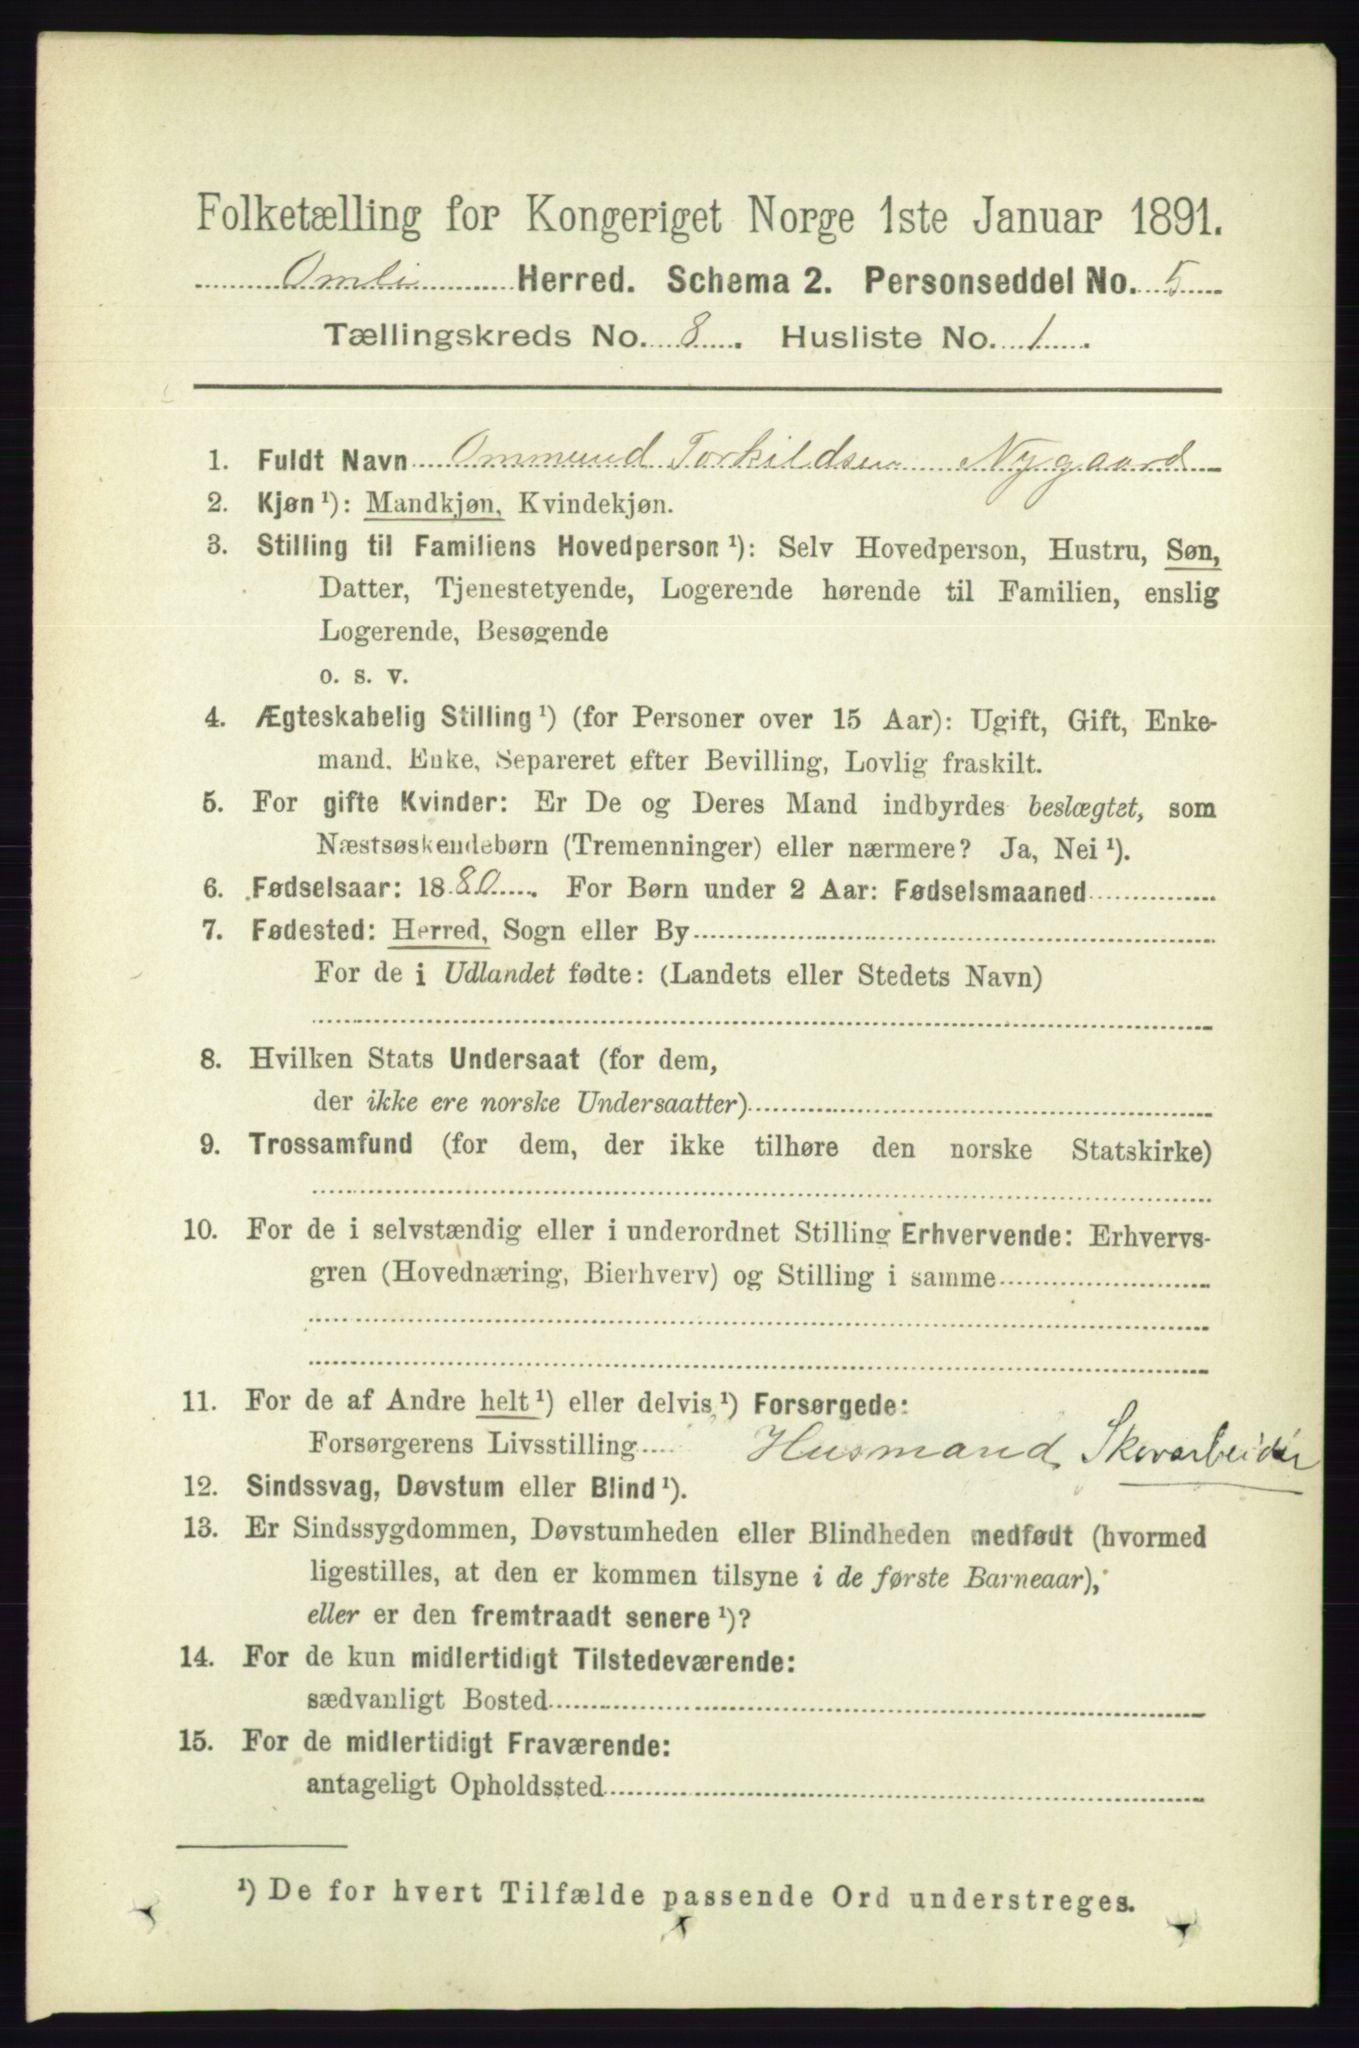 Folketælling for Kongeriget Norge 1ste Januar 1891.
Omli Herred. Schema 2. Personseddel No. 5
Tællingskreds No. 8. Husliste No. 1
1. Fuldt Navn Ommund Torkildsen Nygaard
2. Kjøn ¹): Mandkjøn, Kvindekjøn.
3. Stilling til Familiens Hovedperson ¹): Selv Hovedperson, Hustru, Søn,
Datter, Tjenestetyende, Logerende hørende til Familien, enslig
Logerende, Besøgende
o. s. v.
4. Ægteskabelig Stilling ¹) (for Personer over 15 Aar): Ugift, Gift, Enke-
mand, Enke, Separeret efter Bevilling, Lovlig fraskilt.
5. For gifte Kvinder: Er De og Deres Mand indbyrdes beslægtet, som
Næstsøskendebørn (Tremenninger) eller nærmere? Ja, Nei ¹).
6. Fødselsaar: 1880. For Børn under 2 Aar: Fødselsmaaned
7. Fødested: Herred, Sogn eller By
For de i Udlandet fødte: (Landets eller Stedets Navn)
8. Hvilken Stats Undersaat (for dem,
der ikke ere norske Undersaatter)
9. Trossamfund (for dem, der ikke tilhøre den norske Statskirke)
10. For de i selvstændig eller i underordnet Stilling Erhvervende: Erhvervs-
gren (Hovednæring, Bierhverv) og Stilling i samme
11. For de af Andre helt ¹) eller delvis ¹) Forsørgede:
Forsørgerens Livsstilling Husmand, Skovarbeider
12. Sindssvag, Døvstum eller Blind ¹).
13. Er Sindssygdommen, Døvstumheden eller Blindheden medfødt (hvormed
ligestilles, at den er kommen tilsyne i de første Barneaar),
eller er den fremtraadt senere ¹)?
14. For de kun midlertidigt Tilstedeværende:
sædvanligt Bosted
15. For de midlertidigt Fraværende:
antageligt Opholdssted
¹) De for hvert Tilfælde passende Ord understreges.